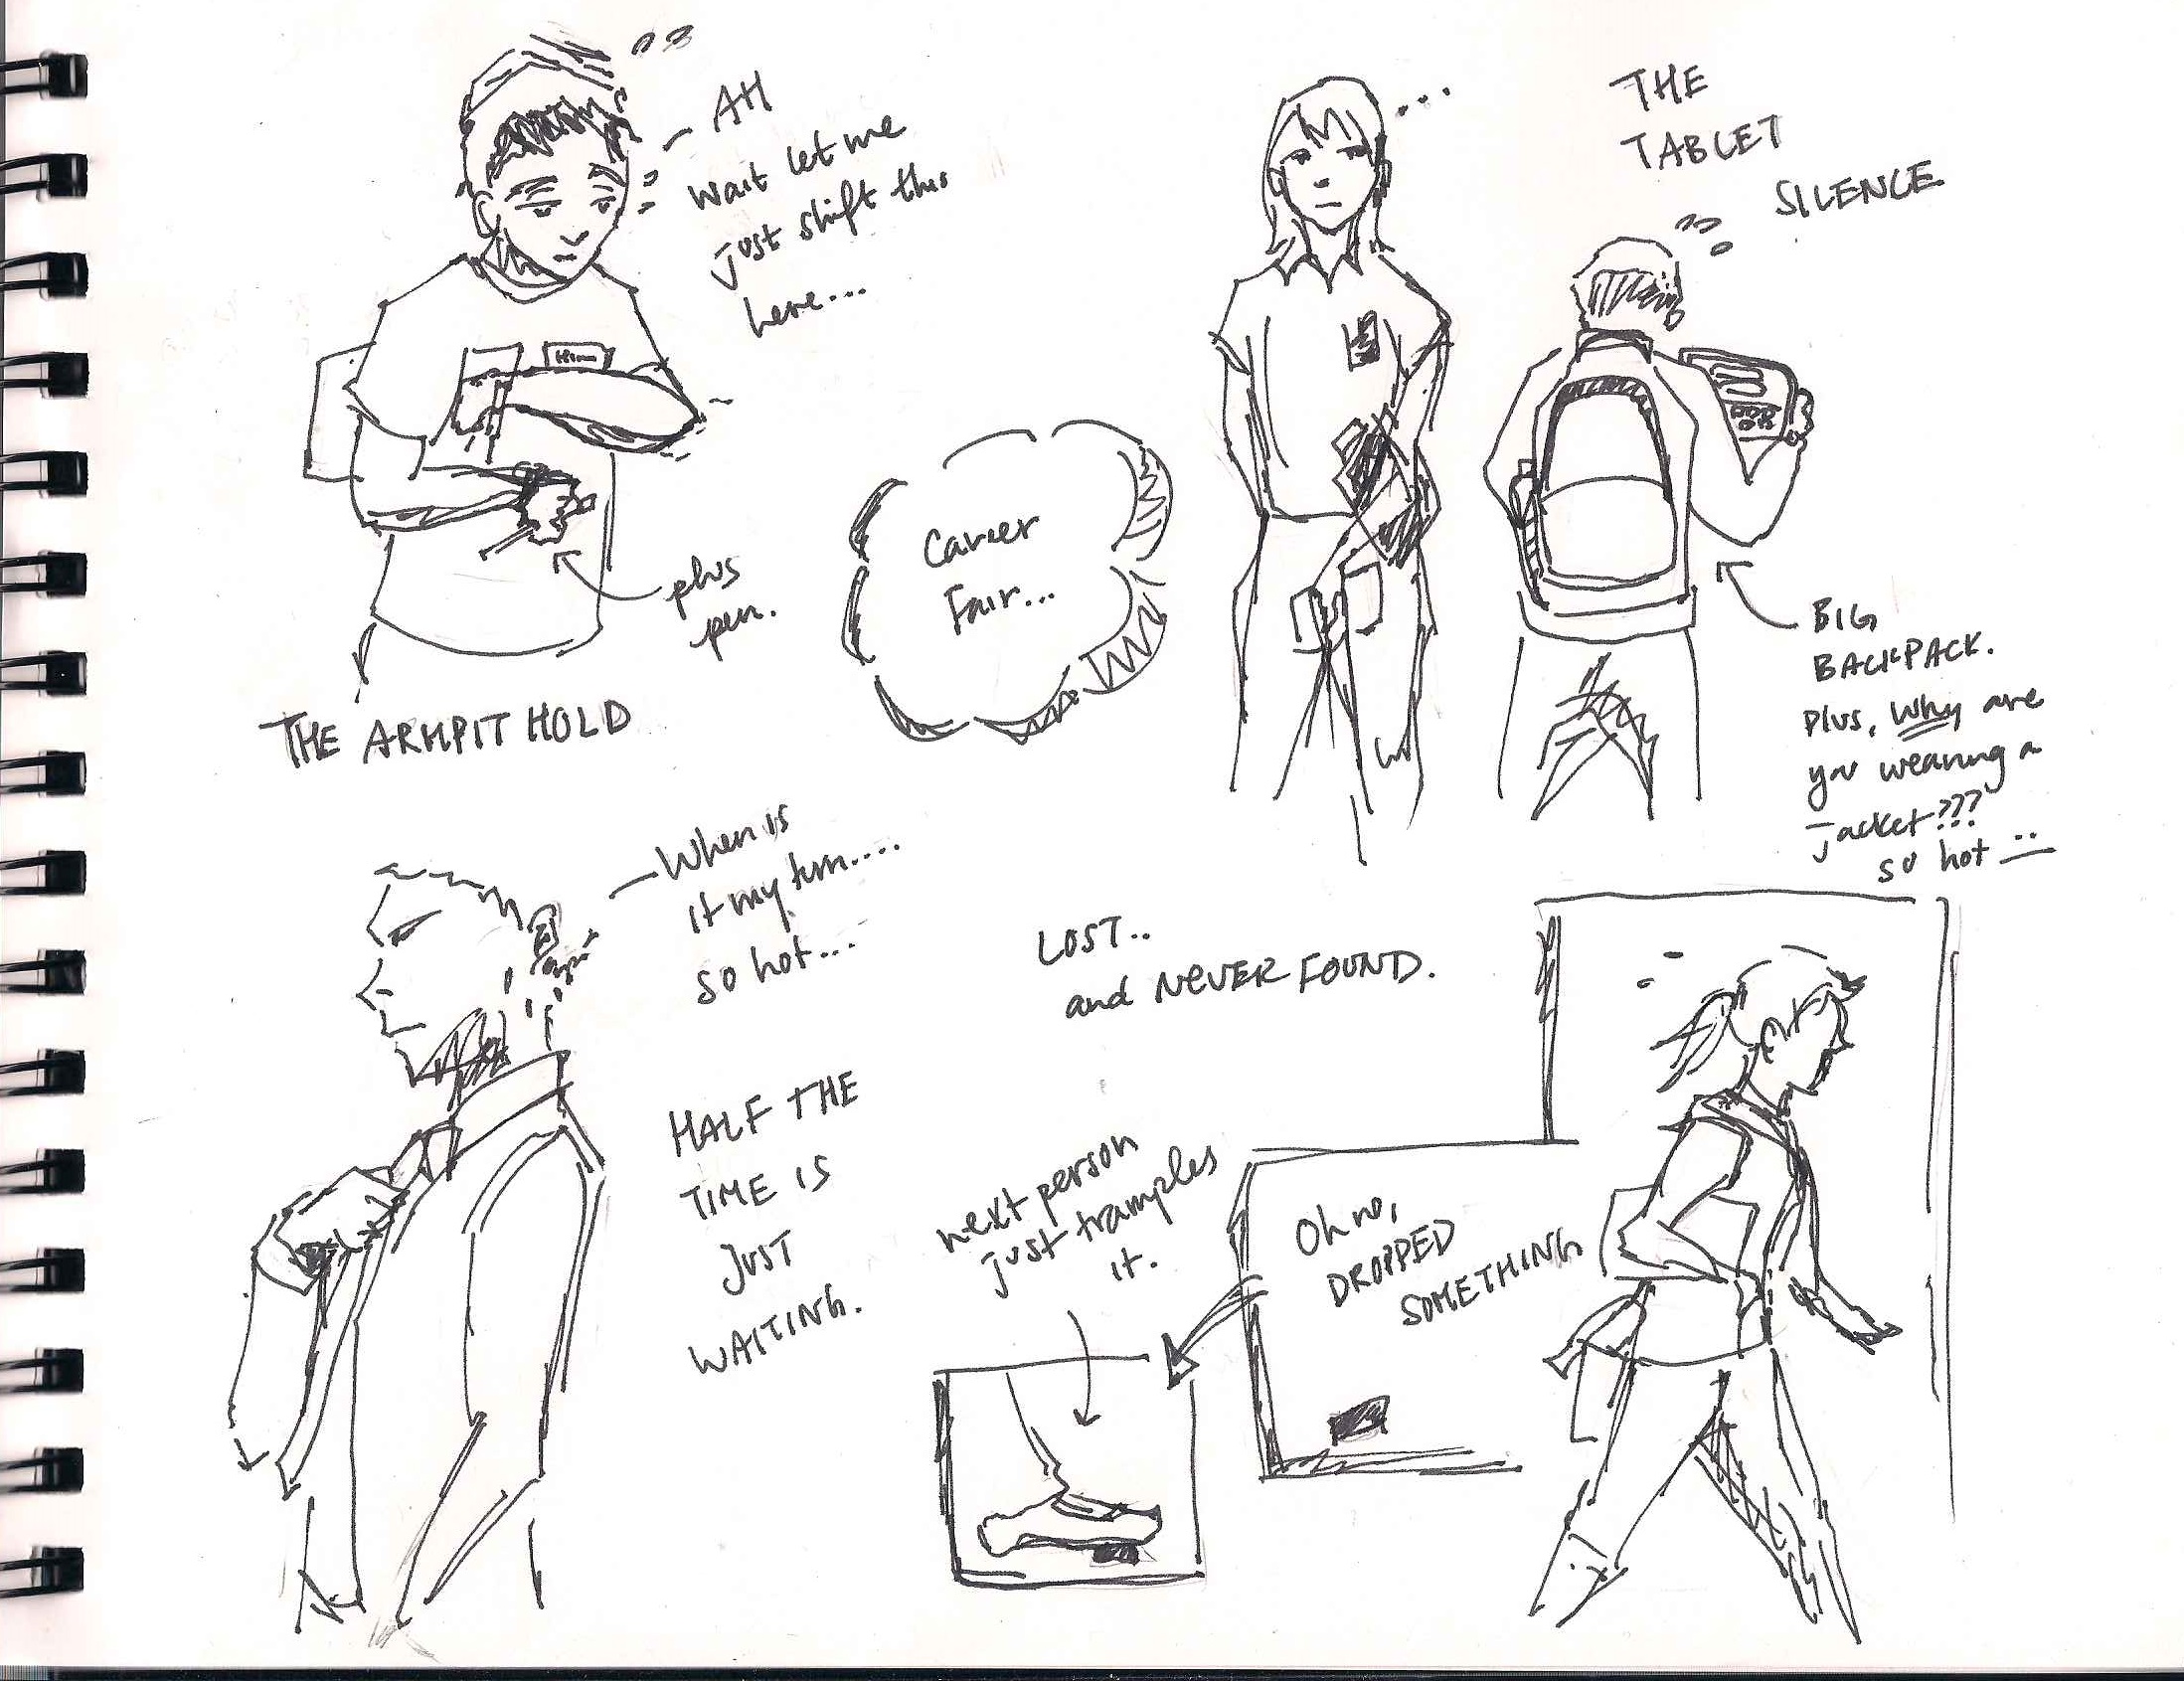 AH
wait let me
just shift this
here....
plus
pen.
THE ARMPIT HOLD
Career
Fair...
...
THE
TABLET
SILENCE
BIG
BACKPACK.
plus, why are
you wearing a
jacket???
so hot
When is
it my turn....
so hot...
HALF THE
TIME IS
JUST
WAITING.
LOST..
and NEVER FOUND.
next person
just tramples
it.
Oh no,
DROPPED
SOMETHING